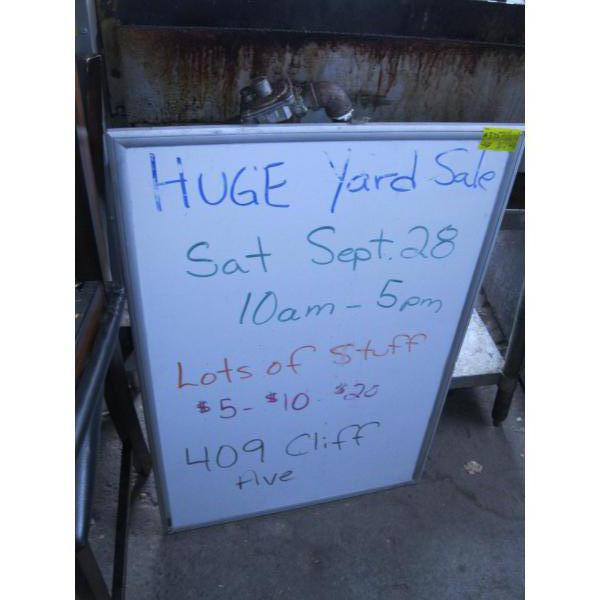 HUGE Yard Sale
Sat Sept. 28
10am - 5pm
Lots of Stuff
$5 - $10 - $20
409 Cliff
Ave